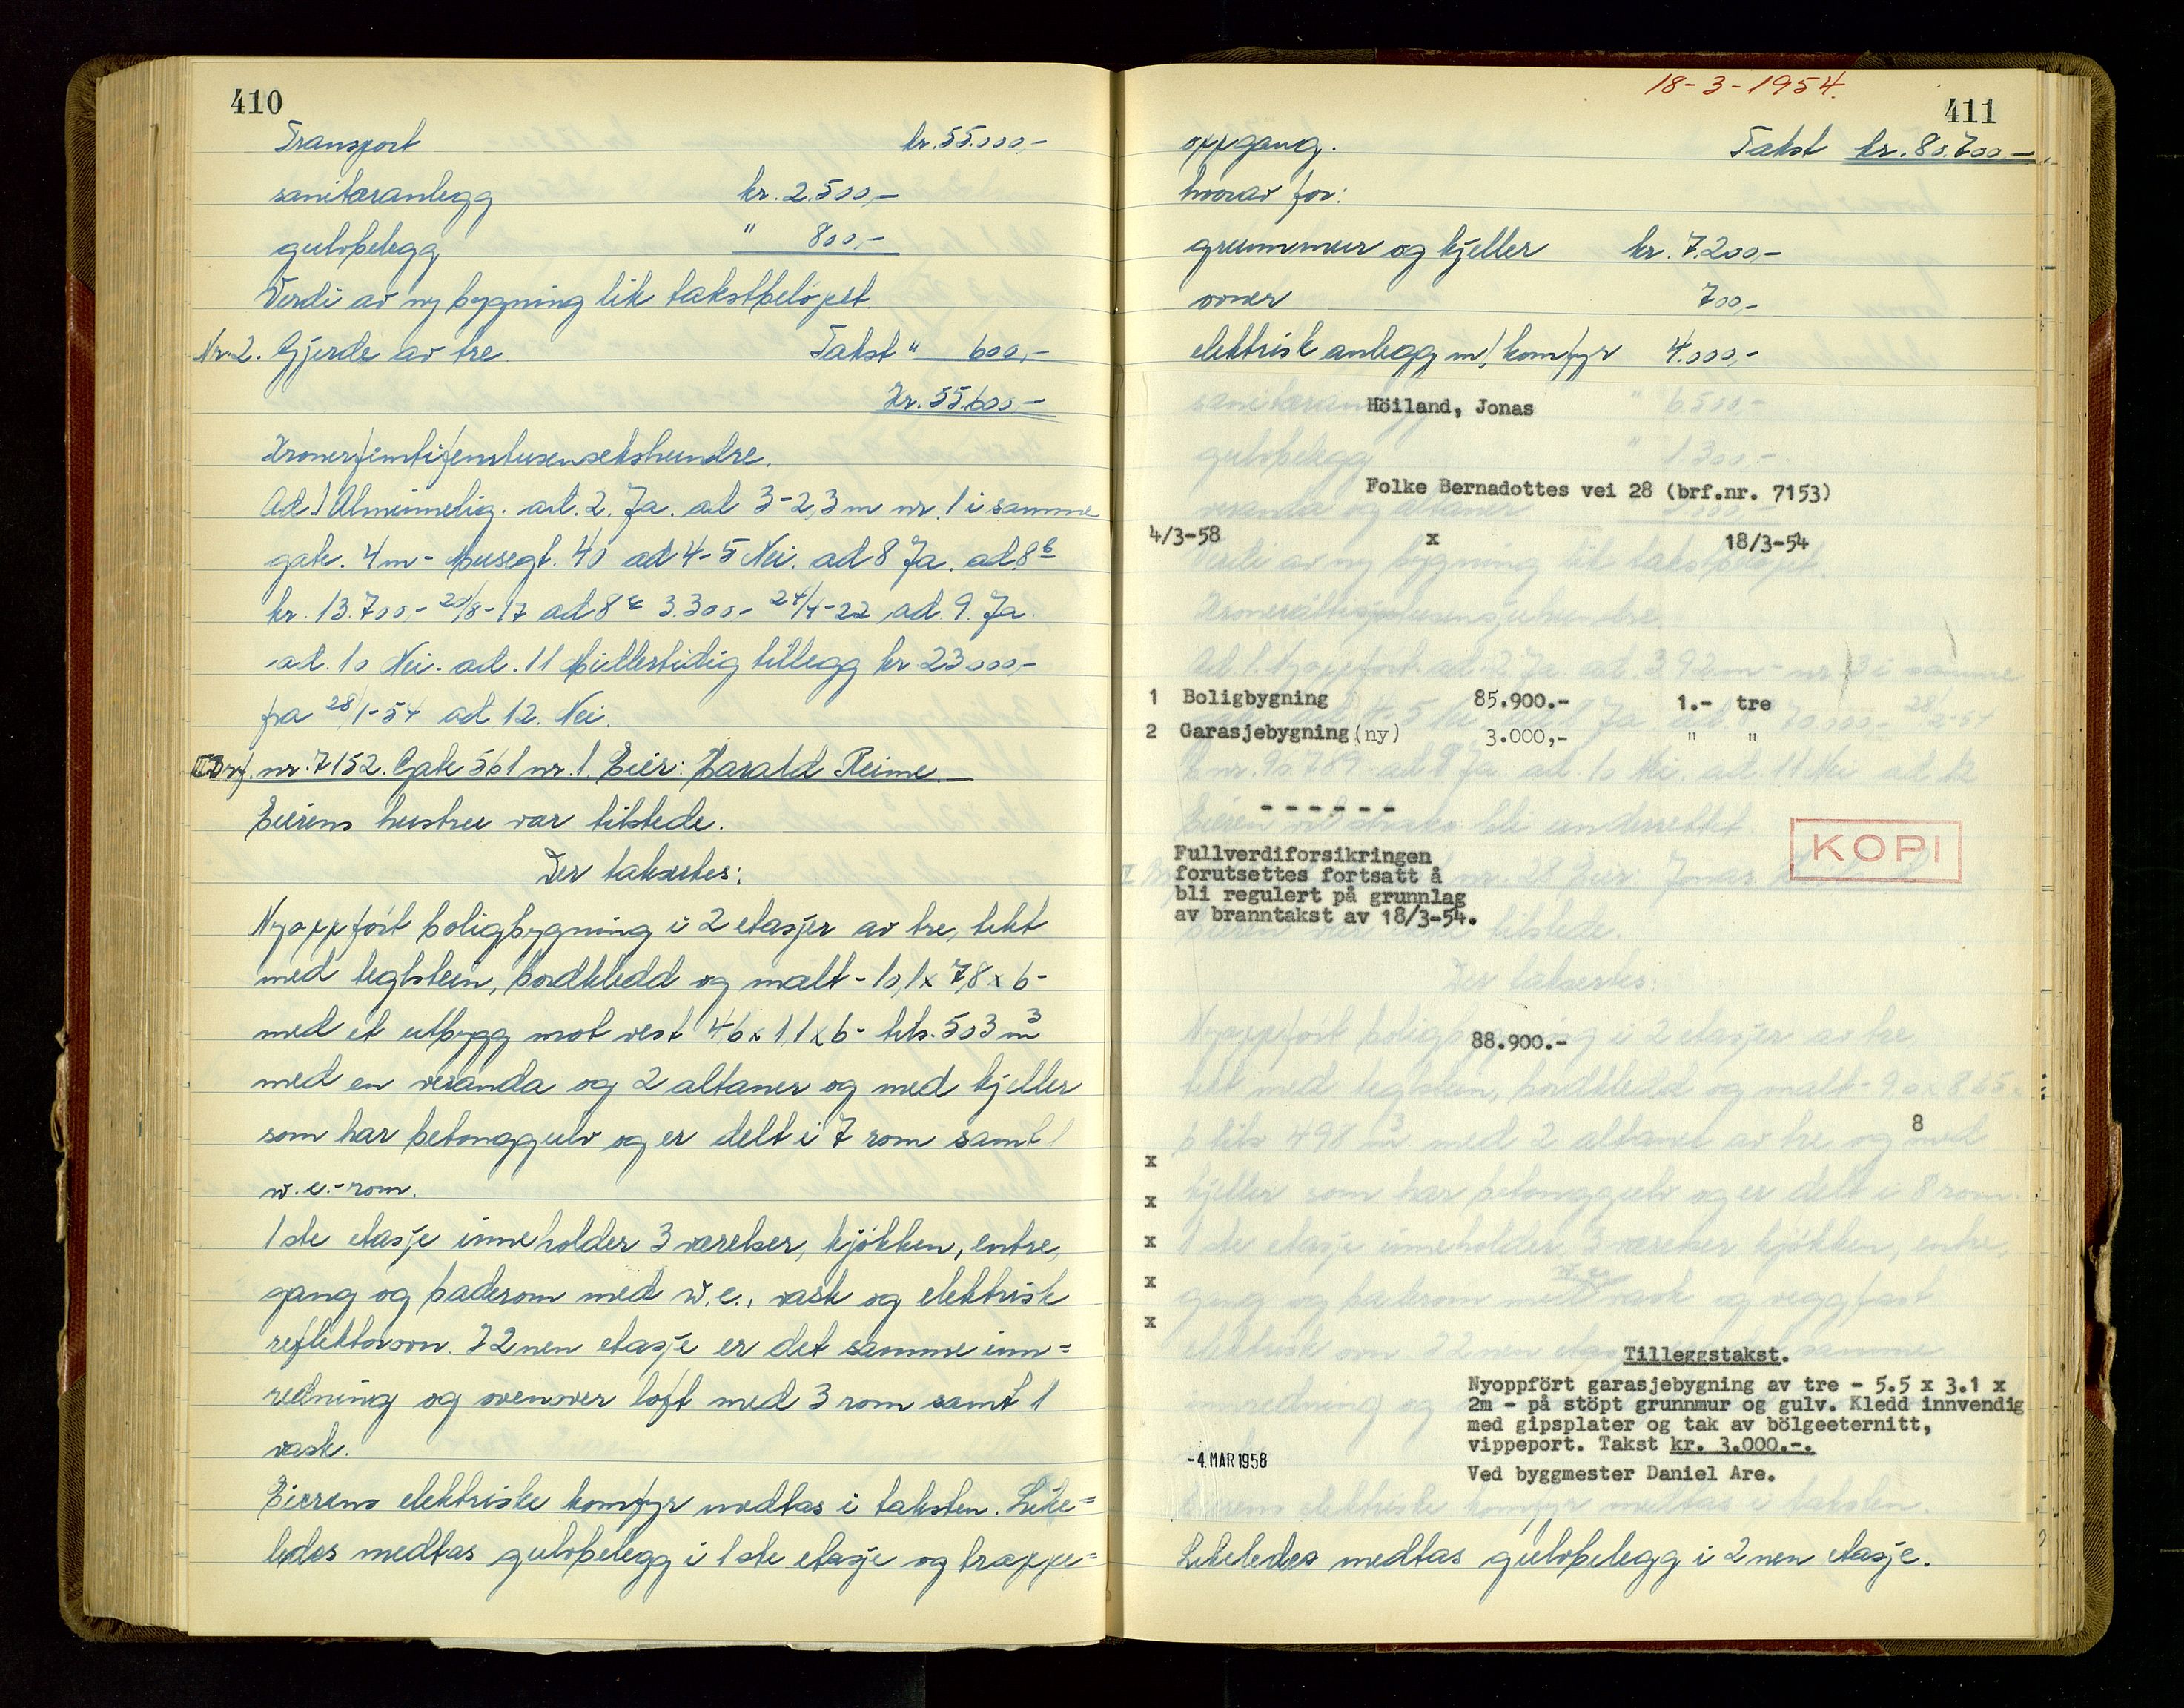 410
Transport kr. 55.000,-
sanitæranlegg kr. 2.500,-
gulvbelegg " 800,-
Verdi av ny bygning lik takstbeløpet.
Nr. 2. Gjerde av tre. Takst " 600,-
Kr. 55.600,-
Kronerfemtifemtusensekshundre.
Ad. 1 Alminnelig. ad. 2. Ja. ad 3 - 2,3 m nr. 1 i samme
gate. 4 m - Musegt. 40 ad 4-5 Nei. ad 8 Ja. ad. 8 b
kr. 13.700,- 20/8-17 ad 8 c 3.300,- 24/4-22 ad. 9. Ja.
ad. 10 Nei. ad. 11 Midlertidig tillegg kr 23000,-
fra 28/1-54 ad 12. Nei.
III Brf. nr. 7152. Gate 561 nr. 1. Eier: Harald Reime.
Eierens hustru var tilstede.
Der takseres:
Nyoppført boligbygning i 2 etasjer av tre, tekt
med teglstein, bordkledd og malt - 10,1 x 7,8 x 6 -
med et utbygg mot vest 4,6 x 1,1 x 6 - tils. 503 m3
med en veranda og 2 altaner og med kjeller
som har betonggulv og er delt i 7 rom samt 1
w.c.-rom.
1ste etasje inneholder 3 værelser, kjøkken, entre,
gang og baderom med w.c., vask og elektrisk
reflektorovn. I 2nen etasje er det samme inn=
redning og ovenover loft med 3 rom samt 1
vask.
Eierens elektriske komfyr medtas i taksten. Like=
ledes medtas gulvbelegg i 1ste etasje og trappe=
18-3-1954.
411
oppgang. Takst kr. 80.700,-
hvorav for:
grunnmur og kjeller kr. 7.200,-
ovner 700,-
elektrisk anlegg m/ komfyr 4.000,-
sanitæranlegg " 6.500,-
Höiland, Jonas
gulvbelegg " 1.300,-
Folke Bernadottes vei 28 (brf.nr. 7153)
veranda og altaner
4/3-58 x 18/3-54
Verdi av ny bygning lik takstbeløpet.
Kroneråttitusensjuhundre.
Ad. 1. Nyoppført. ad. 2 Ja. ad. 3 9,2 m - nr. 3 i samme
1 Boligbygning 85.900.- 1.- tre
2 Garasjebygning (ny) 3.000,- " "
nr. 90.789 ad 9 Ja. ad. 10 Nei. ad. 11 Nei ad 12
- - - - - -
Eieren vil bli underrettet.
KOPI
Fullverdiforsikringen
forutsettes fortsatt å
bli regulert på grunnlag
av branntakst av 18/3-54.
nr. 28 Eier: Jonas
tilstede.
Der takseres:
Nyoppført boligbygning i 2 etasjer av tre,
88.900.-
tekt med teglstein, bordkledd og malt - 9,0 x 8,65 x
8
6 tils 498 m3 med 2 altaner av tre og med
x
kjeller som har betonggulv og er delt i 8 rom.
x
1ste etasje inneholder 3 værelser kjøkken, entre,
x
gang og baderom med w.c. vask og veggfast
x
x
elektrisk ovn. I 2nen etasje samme
Tilleggstakst.
innredning og
Nyoppfört garasjebygning av tre - 5.5 x 3.1 x
2m - på stöpt grunnmur og gulv. Kledd innvendig
med gipsplater og tak av bölgeeternitt,
vippeport. Takst kr. 3.000.-.
-4. MAR 1958
Ved byggmester Daniel Are.
Eierens elektriske komfyr medtas i taksten.
Likeledes medtas gulvbelegg i 2nen etasje.